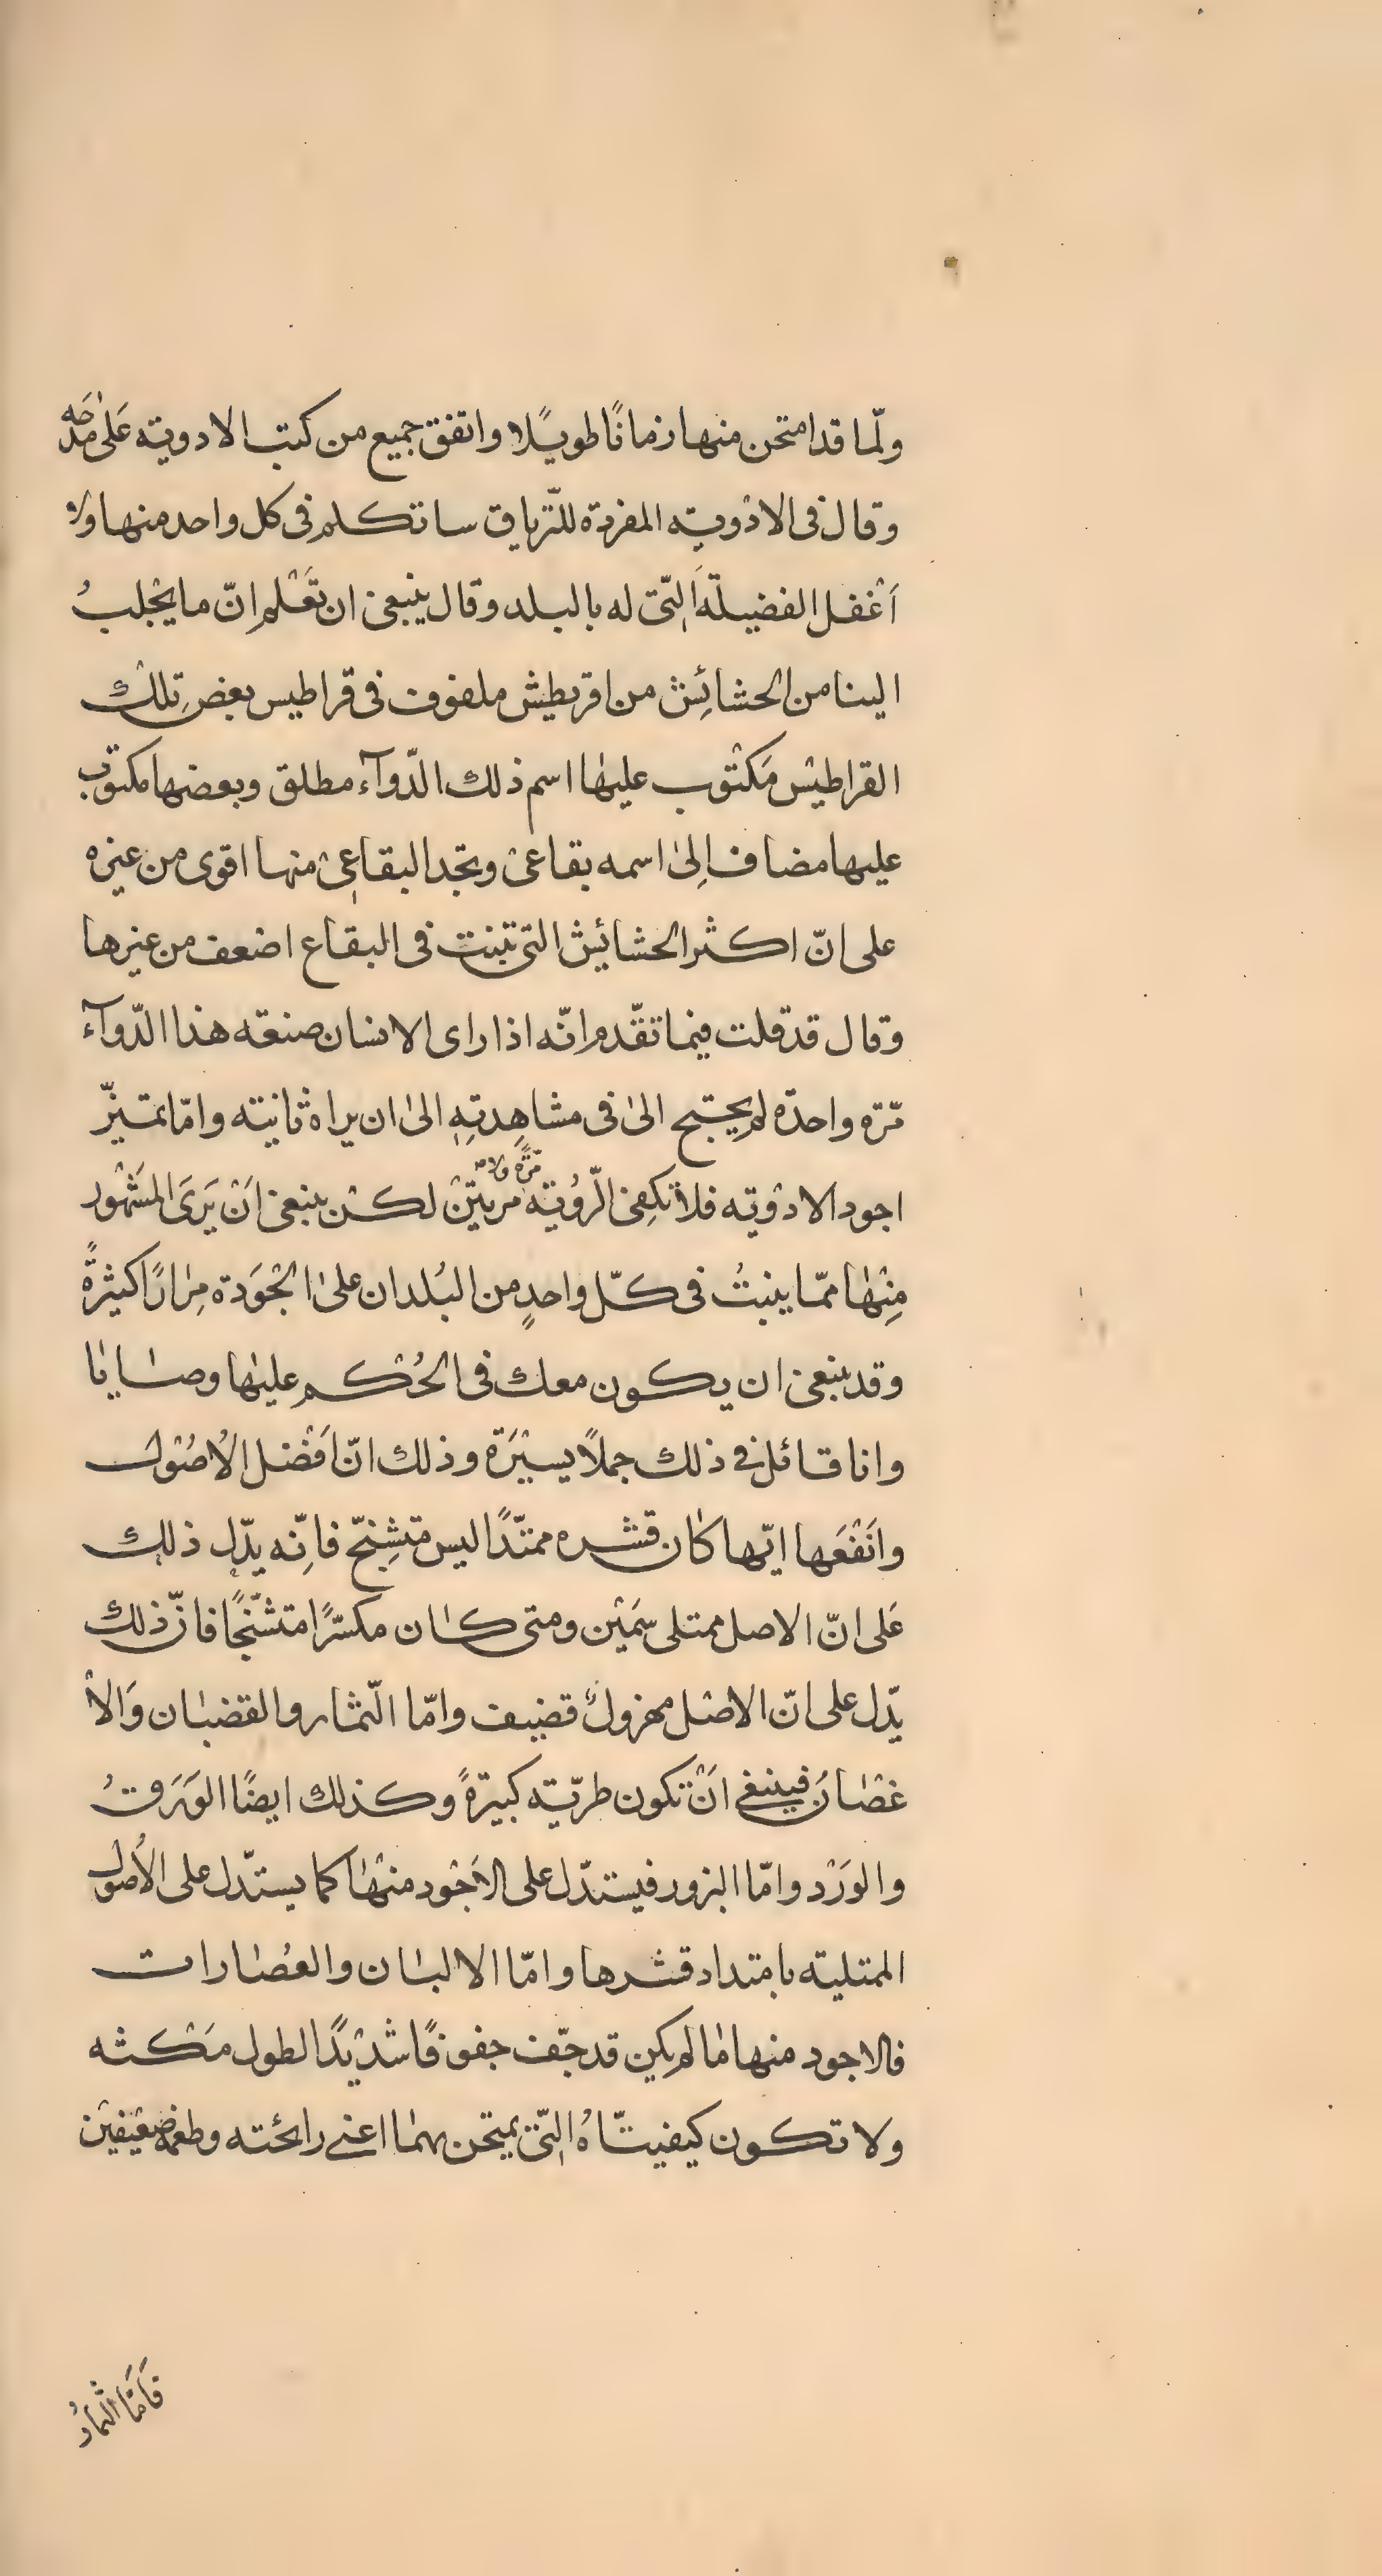 ولمّا قد امتحن منها زمانًا طويلًا واتفق جميع من كتب الادويته عَلىٰ مدحَه
وقال فى الادْويته المفردة للتّرياق ساتكلم فى كل واحد منها ولا
اَغْفل الفضيلة اَلتّى له بالبلد وقال ينبغى ان تَعْلم انّ ما يُجْلبُ
الينا من الحشائِش من اقريطيش ملفوف فى قراطيس بعض تِلك
القراطيش مَكتْوب عليهٰا اسم ذلك الدّوآء مطلق وبعضها مكتوب
عليها مضاف اِلىٰ اسمه بقاعىْ وتجد البقاعِىْ منها اقوى من غيره
على انّ اكثر الحشائيش التى تنبت فى البقاع اضعف من غيرها
وقال قد قلت فيما تقّدم انّه اذا راى الانسان صنعة هذا الدّوآء
مّرة واحدّه لم يحتج الىٰ فى مشاهِدتِهِ الىٰ ان يراه ثانيته وامّا تمتيزّ
اجود الادْوْيته فلا تكفِى الّرؤيته مّرةً ولا مّرتيّنْ لكنْ ينبغى اَنْ يَرىَ المَشْهُور
مِنْهٰا ممّا ينبتُ فى كّل واحدٍ من البُلدان علىٰ الجْوَدة مِرٰارًا كثيْرةً
وقد ينبغى ان يكون معك فى الحُكم عليهٰا وصايٰا
وانا قائل فى ذلك جملًا يسيْرَة وذلك انّ اَفْضل الاُصُوْل
واَنْفَعَها ايّها كٰان قشره ممتّدًا ليس متشِنجّ فاِنّه يدّل ذلك
عَلى انّ الاصل ممتلى سَمَيْن ومتى كٰان مكسّرًا متشّنجًا فانّ ذلك
يدّل على انّ الاصْل مهزولٌ قضيف وامّا الّثمار والقضبٰان وَالاْ
غصْٰانُ فينبغى اَنْ تكون طرّيته كبيرّةً وكذلك ايضًا الوَرَقُ
والوَرْد وامّا البزور فيستدّل على الاَجْود منهْٰا كما يستدّل على الاُصُول
الممتليته بامتداد قشرها وامّا الالبٰان والعُصٰارات
فالاجود منها مٰا لم يكن قد جّف جفوفًا شدْيدًا لطول مَكثه
ولا تكون كيفيتّاهُ التّى يمتحن بهمٰا اعنى رائحته وطعمه ضعيْفيْن
فَاَمَّا الثمارُ